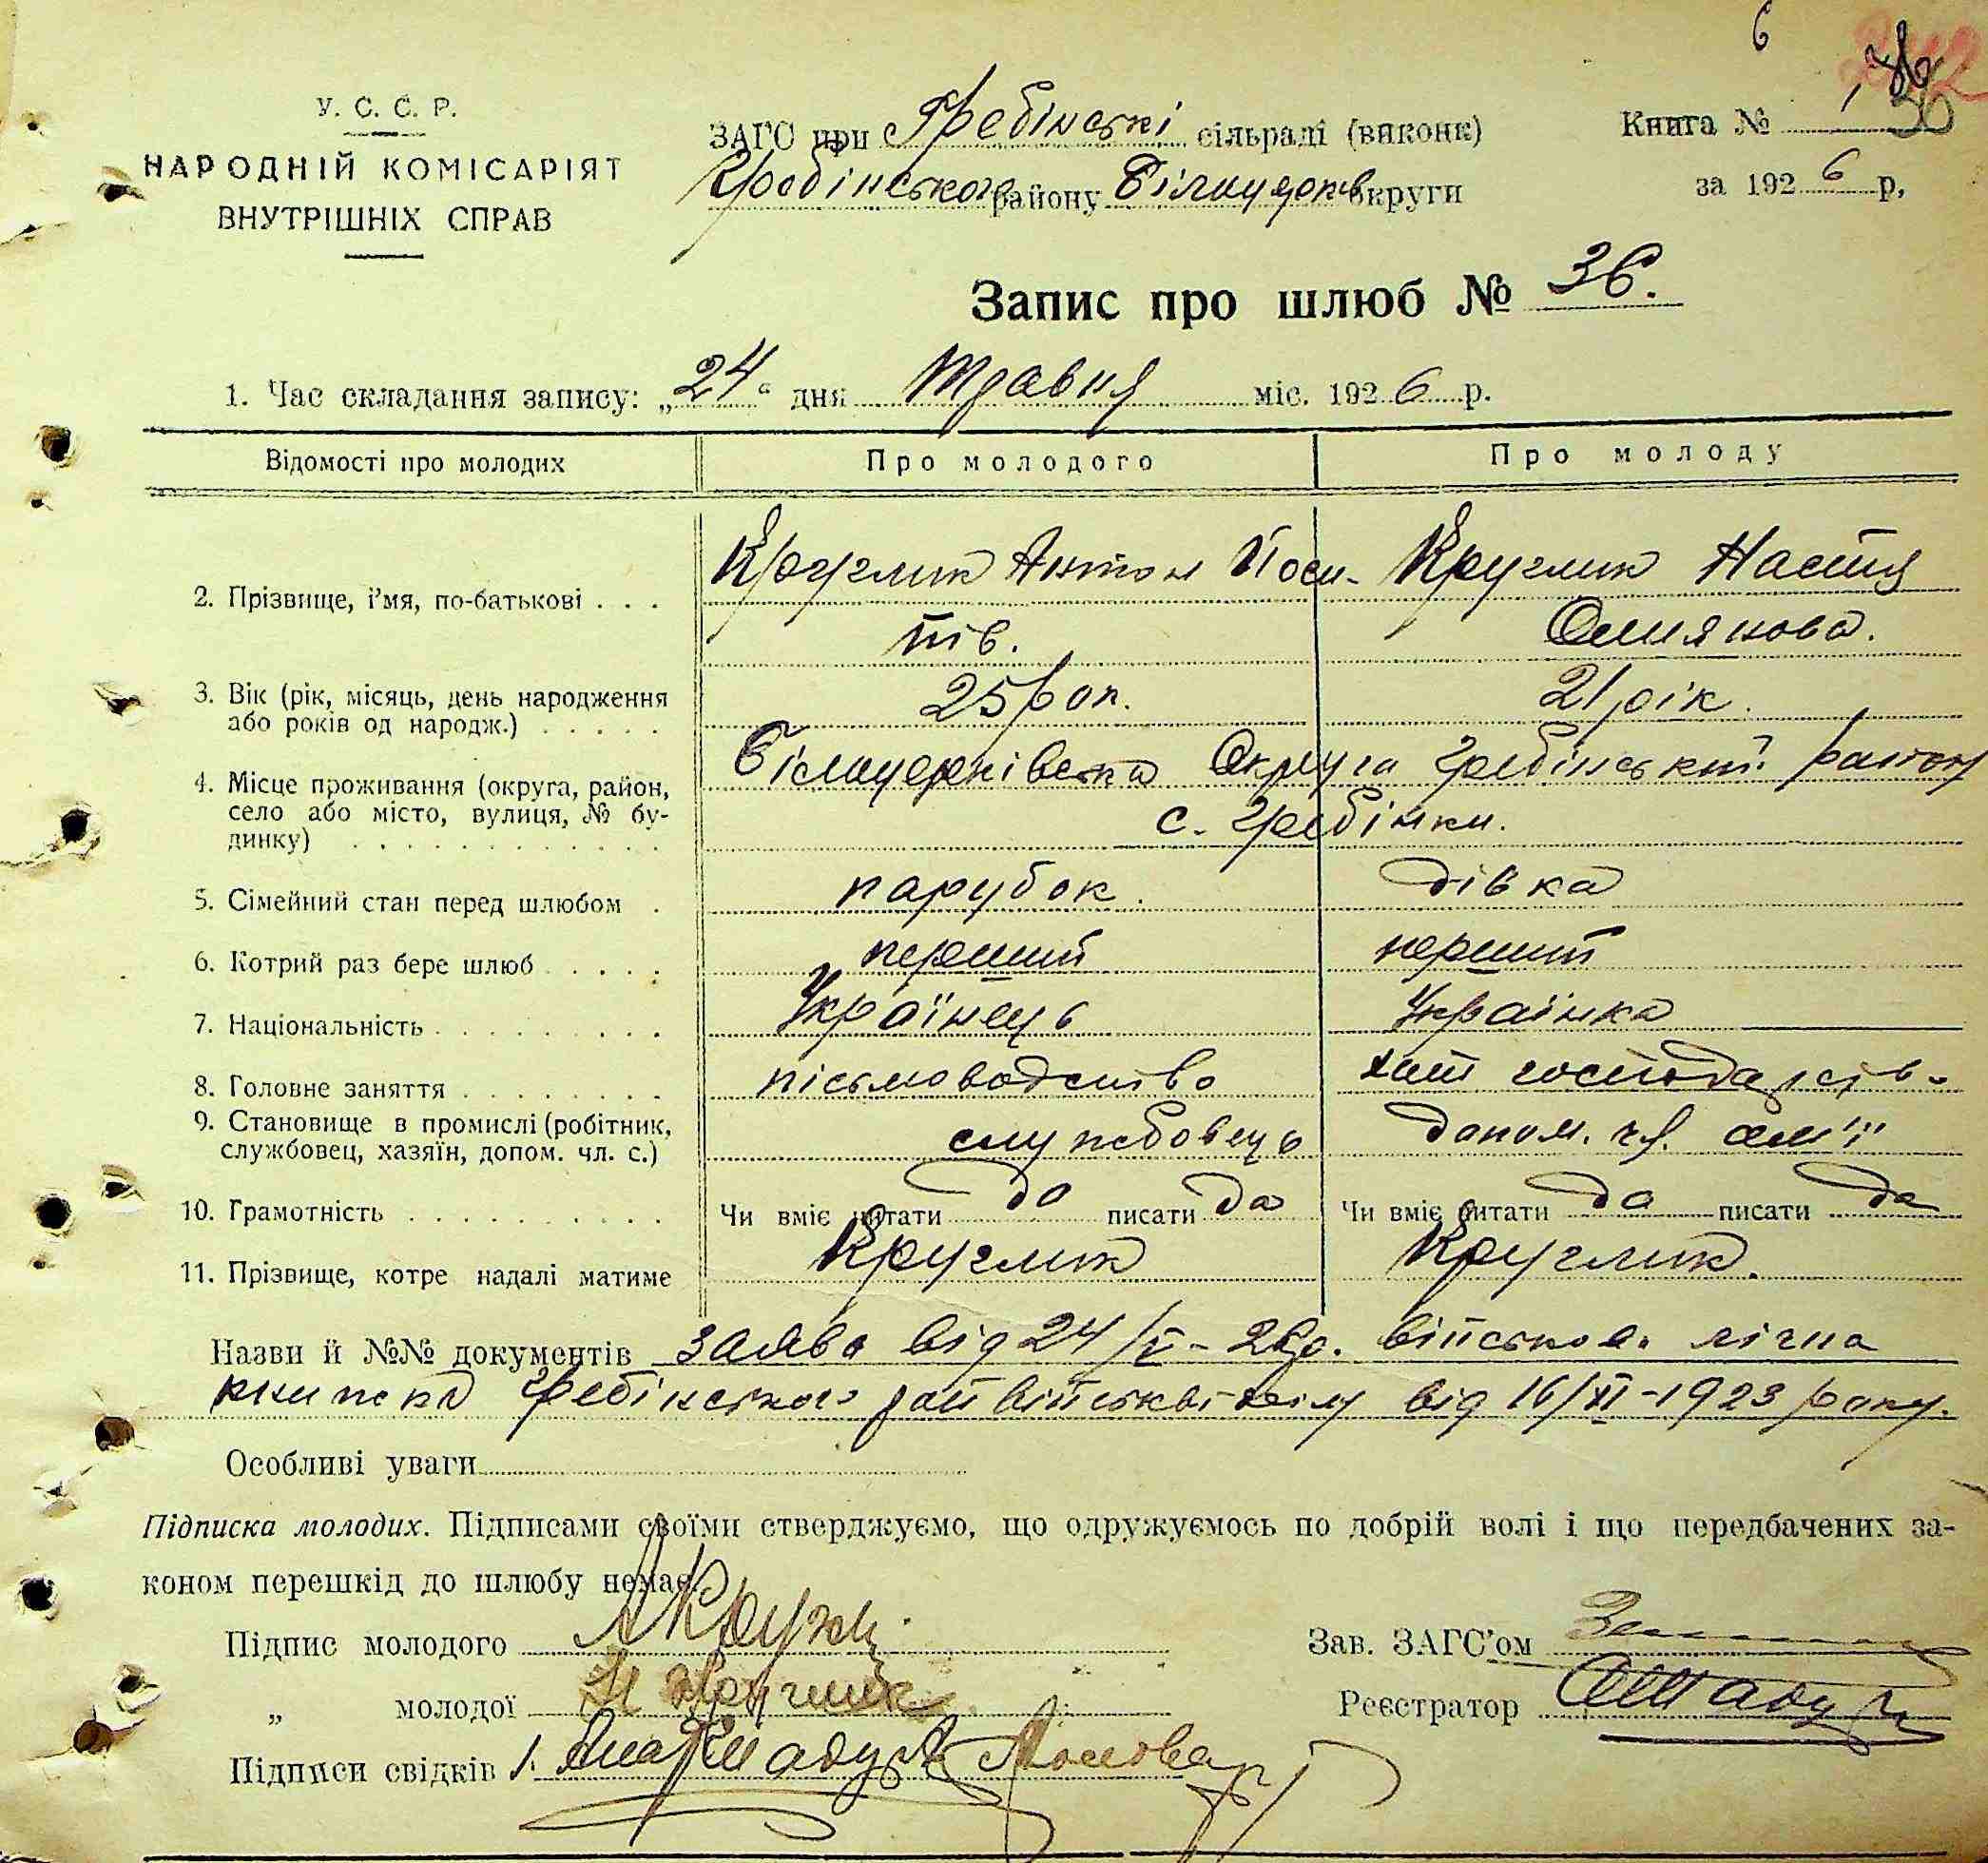 6
У. С. С. Р.
НАРОДНІЙ КОМІСАРІЯТ
ВНУТРІШНІХ СПРАВ
ЗАГС при Гребінські сільраді (виконк)
Гребінського району Білоцерків округи
Книга № 1
за 1926 р,
Запис про шлюб № 36.
1. Час складання запису: „24“ дня Травня міс. 1926 р.
Відомості про молодих Про молодого Про молоду
2. Прізвище, і'мя, по-батькові . . . Круглик Антон Йоси- Круглик Настя
пів. Омелянова.
3. Вік (рік, місяць, день народження 25 рок. 21 рік.
або років од народж.) . . . . .
4. Місце проживання (округа, район, Білоцерківска Округа Гребінський район
село або місто, вулиця, № бу- с. Гребінки.
динку) . . . . . . . . . . . .
5. Сімейний стан перед шлюбом . парубок. дівка
6. Котрий раз бере шлюб . . . . . перший перший
7. Національність . . . . . . . . . Українець Українка
8. Головне заняття . . . . . . . . пісьмоводство хат господарств-
9. Становище в промислі (робітник, службовець допом. чл. сем'ї
службовец, хазяїн, допом. чл. с.)
10. Грамотність . . . . . . . . . . . Чи вміє читати да писати да Чи вміє читати да писати да
11. Прізвище, котре надалі матиме Круглик Круглик.
Назви й №№ документів заява від 24/V-26р. військов. лічна
книжка Гребінського райвійськвідділу від 16/XI-1923 року.
Особливі уваги
Підписка молодих. Підписами своїми стверджуємо, що одружуємось по добрій волі і що передбачених за-
коном перешкід до шлюбу немає.
Підпис молодого АКруг
„ молодої Н Круглик
Зав. ЗАГС'ом
Реєстратор
Підписи свідків 1.